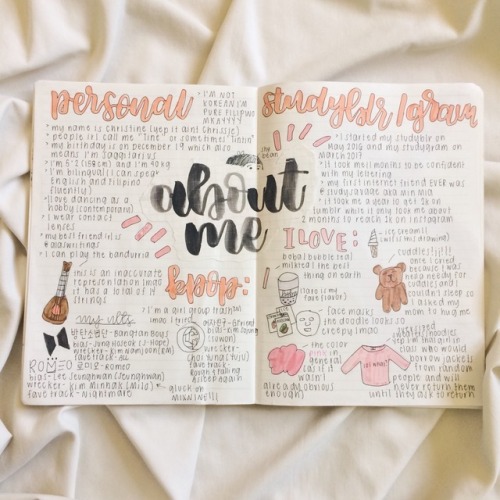 personal
• I'M NOT
KOREAN I'M
PURE FILIPINO
• my name is christine (yep it aint chrissie)
people irl call me "tine" or sometimes
• my birthday is on december 19 which also
means i'm sagittarius
• i'm 5'2 (158cm) and i'm 40kg
• i'm bilingual (i can speak
English and Filipino
fluently)
• love dancing as a
hobby (contemporary)
• i wear contact
lenses
• my best friend is
• i can play the bandurria
this is an inaccurate
representation lmao
it has a total of 14
strings
about
me
studyblr/gram
• i started my studyblr on
may 2016 and my studygram on
march 2017
• it took me 11 months to be confident
with my lettering
• my first internet friend EVER was
studysavage aka min mia
• it took me a year to get 5k on
tumblr while it only took me about
2 months to reach 5k on instagram
I LOVE:
boba/bubble tea/
milktea | the best
thing on earth
(taro is my
fave flavor)
ice cream!!
(wtf is this drawing)
cuddles!!!!!
once i cried
because i was
in need for
cuddles and
i couldn't sleep so
i asked my
mom to hug me
face mask!
the doodle looks so
creepy lmao
• the color
pink in
general
(as if it
wasn't
already obvious
enough)
oversized hoodies
yep i'm that girl in
class who would
borrow jackets
from random
people and will
never return them
until they ask to return
kpop:
• i'm a girl group trash
lmao
my ults
방탄소년단 - Bangtan Boys
bias - Jung Hoseok (J-Hope)
wrecker - Kim Namjoon (RM)
ROMEO 로미오 - Romeo
wrecker - Kim Minhak (Milo)
fave track - nightmare
여자친구 - GFriend
wrecker -
fave track -
Rough, Falling
Asleep Again